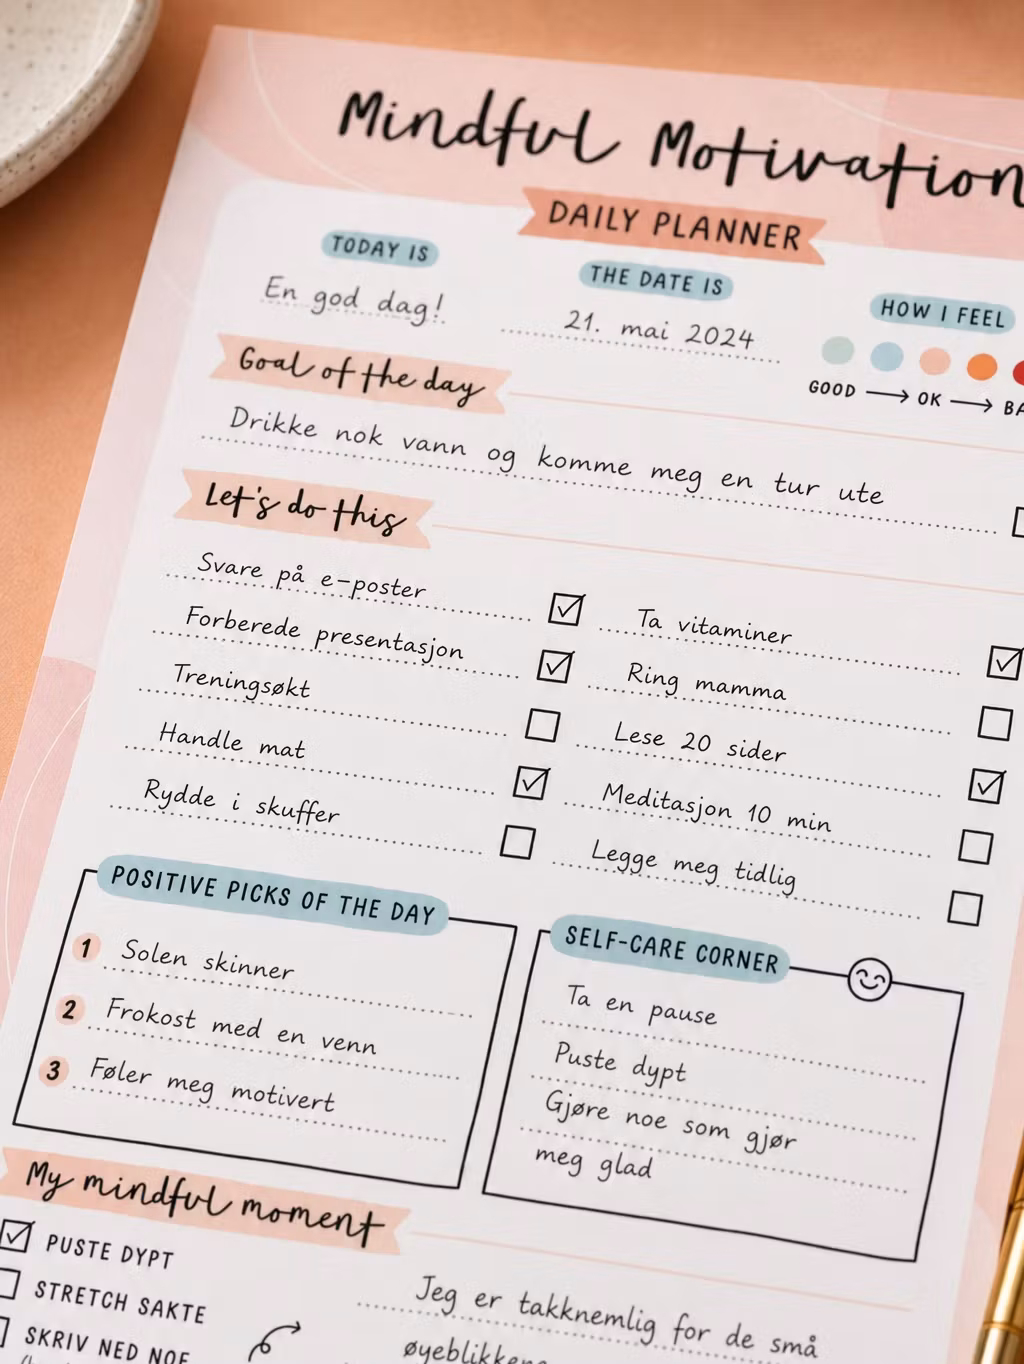 Mindful Motivation
DAILY PLANNER
TODAY IS
En god dag!
THE DATE IS
21. mai 2024
HOW I FEEL
GOOD → OK →
Goal of the day
Drikke nok vann og komme meg en tur ute
Let's do this
Svare på e-poster
Forberede presentasjon
Treningsøkt
Handle mat
Rydde i skuffer
Ta vitaminer
Ring mamma
Lese 20 sider
Meditasjon 10 min
Legge meg tidlig
POSITIVE PICKS OF THE DAY
1 Solen skinner
2 Frokost med en venn
3 Føler meg motivert
SELF-CARE CORNER
Ta en pause
Puste dypt
Gjøre noe som gjør
meg glad
My mindful moment
PUSTE DYPT
STRETCH SAKTE
SKRIV NED NOE
Jeg er takknemlig for de små